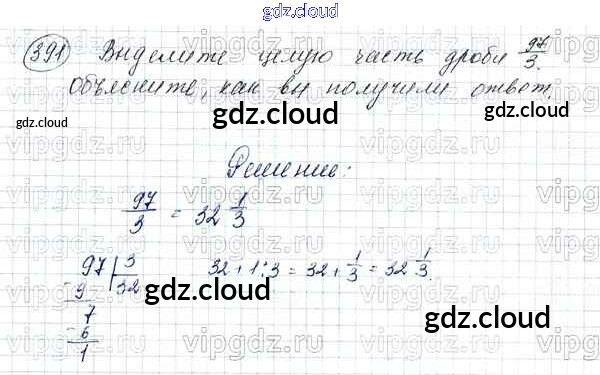 gdz.cloud
391 Выделите целую часть дроби 97/3.
Объясните, как вы получили ответ.
gdz.cloud gdz.cloud gdz.cloud
Решение:
97/3 = 32 1/3
97 | 3 32 + 1 : 3 = 32 + 1/3 = 32 1/3.
- 9 32
7
- 6
1
gdz.cloud gdz.cloud
gdz.cloud
vipgdz.com